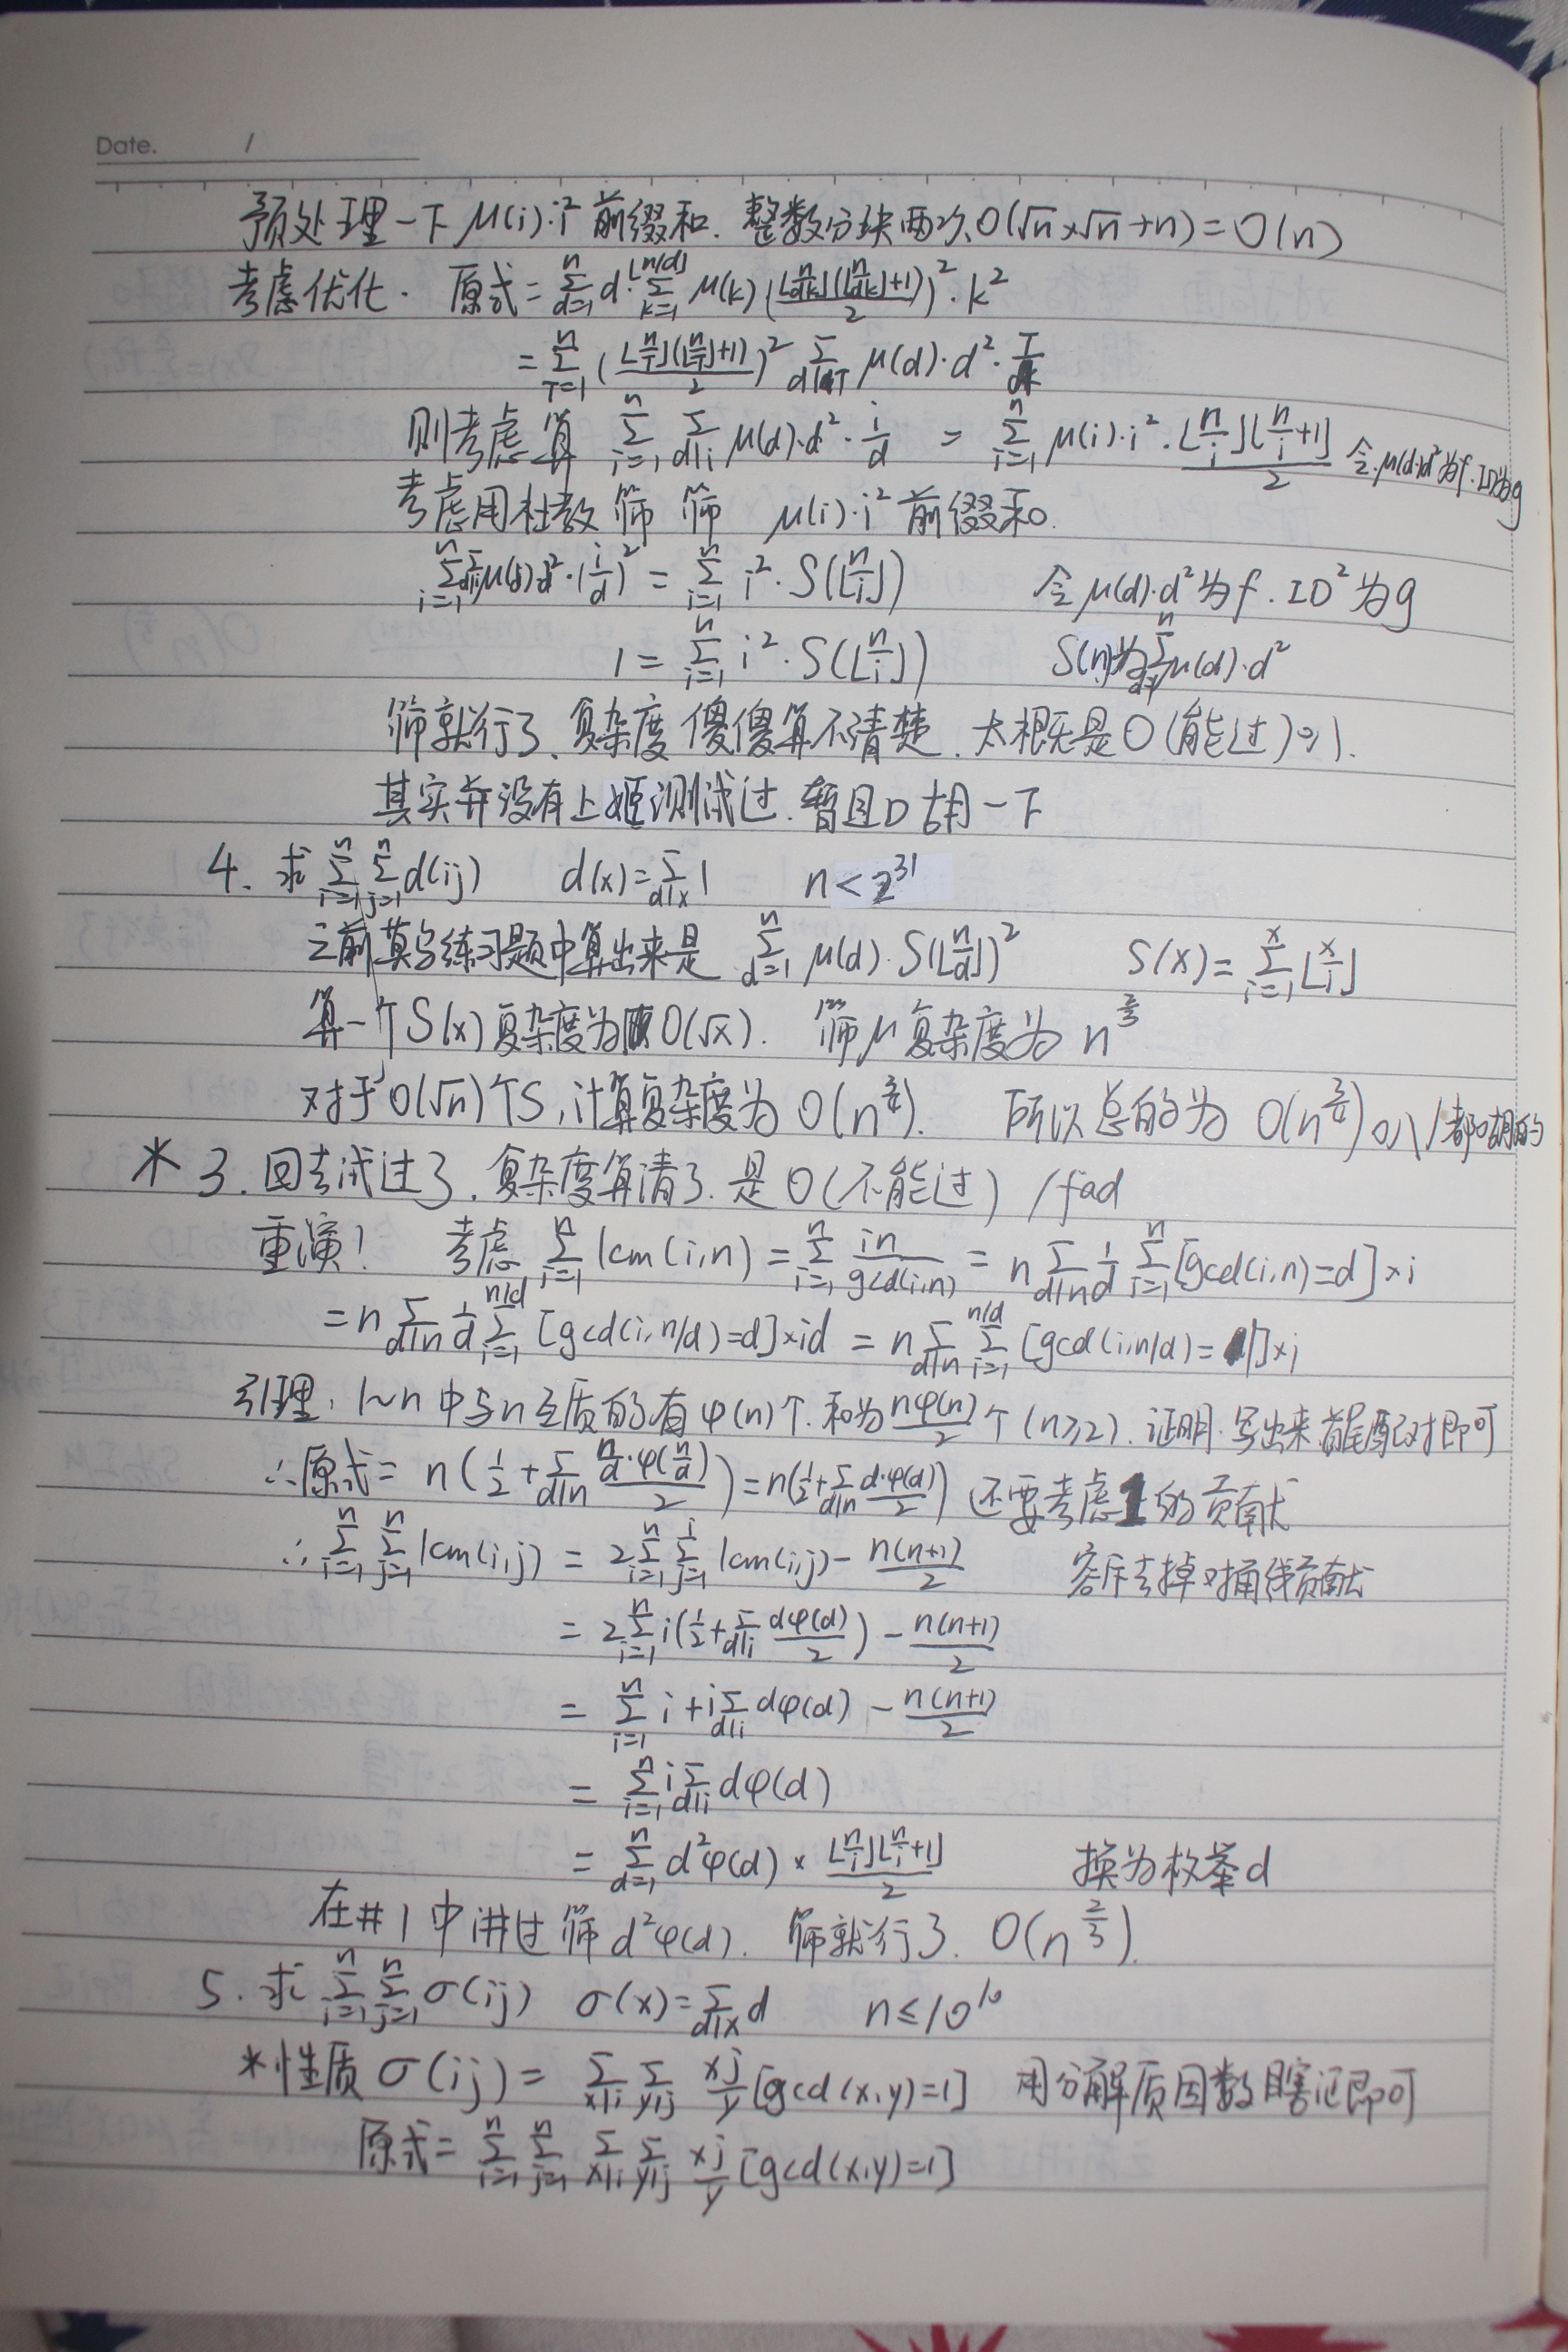 Date. /
预处理一下 μ(i)·i² 前缀和. 整数分块两次, O(√n×√n+n)=O(n)
考虑优化. 原式=∑_{d=1}^{n} d·∑_{k=1}^{⌊n/d⌋} μ(k) (⌊n/dk⌋(⌊n/dk⌋+1)/2)²·k²
=∑_{T=1}^{n} (⌊n/T⌋(⌊n/T⌋+1)/2)² ∑_{d|T} μ(d)·d²·T/d
则考虑算 ∑_{i=1}^{n} ∑_{d|i} μ(d)·d²·i/d = ∑_{i=1}^{n} μ(i)·i²·⌊n/i⌋⌊n/i+1⌋/2 令μ(d)·d²为f. ID为g
考虑用杜教筛 筛 μ(i)·i² 前缀和.
∑_{i=1}^{n} ∑_{d|i} μ(d)·d²·(i/d)² = ∑_{i=1}^{n} i²·S(⌊n/i⌋) 令 μ(d)·d² 为 f. ID² 为 g
1 = ∑_{i=1}^{n} i²·S(⌊n/i⌋) S(n)为∑_{d=1}^{n} μ(d)·d²
筛就行了. 复杂度傻傻算不清楚. 大概是 O(能过)
其实并没有上姬测试过. 暂且口胡一下
4. 求 ∑_{i=1}^{n} ∑_{j=1}^{n} d(ij) d(x)=∑_{d|x} 1 n<2³¹
之前莫与练习题中算出来是 ∑_{d=1}^{n} μ(d)·S(⌊n/d⌋)² S(x)=∑_{i=1}^{x} ⌊x/i⌋
算一个S(x)复杂度为O(√x). 筛μ复杂度为 n^{2/3}
对于O(√n)个S, 计算复杂度为 O(n^{3/4}). 所以总的为 O(n^{3/4}) 都口胡的
* 3. 回去试过了. 复杂度算清了. 是 O(不能过) /fad
重演! 考虑 ∑_{i=1}^{n} lcm(i,n) = ∑_{i=1}^{n} in/gcd(i,n) = n∑_{d|n} 1/d ∑_{i=1}^{n} [gcd(i,n)=d]×i
=n∑_{d|n} 1/d ∑_{i=1}^{n/d} [gcd(i,n/d)=d]×id = n∑_{d|n} ∑_{i=1}^{n/d} [gcd(i,n/d)=1]×i
引理: 1~n中与n互质的有φ(n)个. 和为 nφ(n)/2 个 (n≥2). 证明. 写出来首尾配对即可
∴原式= n(1/2+∑_{d|n} (n/d·φ(n/d))/2)=n(1/2+∑_{d|n} d·φ(d)/2) 还要考虑1的贡献
∴ ∑_{i=1}^{n} ∑_{j=1}^{n} lcm(i,j) = 2∑_{i=1}^{n} ∑_{j=1}^{i} lcm(i,j) - n(n+1)/2 容斥去掉对角线贡献
= 2∑_{i=1}^{n} i(1/2+∑_{d|i} dφ(d)/2) - n(n+1)/2
= ∑_{i=1}^{n} i+i∑_{d|i} dφ(d) - n(n+1)/2
= ∑_{i=1}^{n} i∑_{d|i} dφ(d)
= ∑_{d=1}^{n} d²φ(d) × ⌊n/i⌋⌊n/i+1⌋/2 换为枚举d
在#1中讲过筛 d²φ(d). 筛就行了. O(n^{2/3}).
5. 求 ∑_{i=1}^{n} ∑_{j=1}^{n} σ(ij) σ(x)=∑_{d|x} d n≤10¹⁰
*性质 σ(ij) = ∑_{x|i} ∑_{y|j} xj/y [gcd(x,y)=1] 用分解质因数瞎证即可
原式= ∑_{i=1}^{n} ∑_{j=1}^{n} ∑_{x|i} ∑_{y|j} xj/y [gcd(x,y)=1]